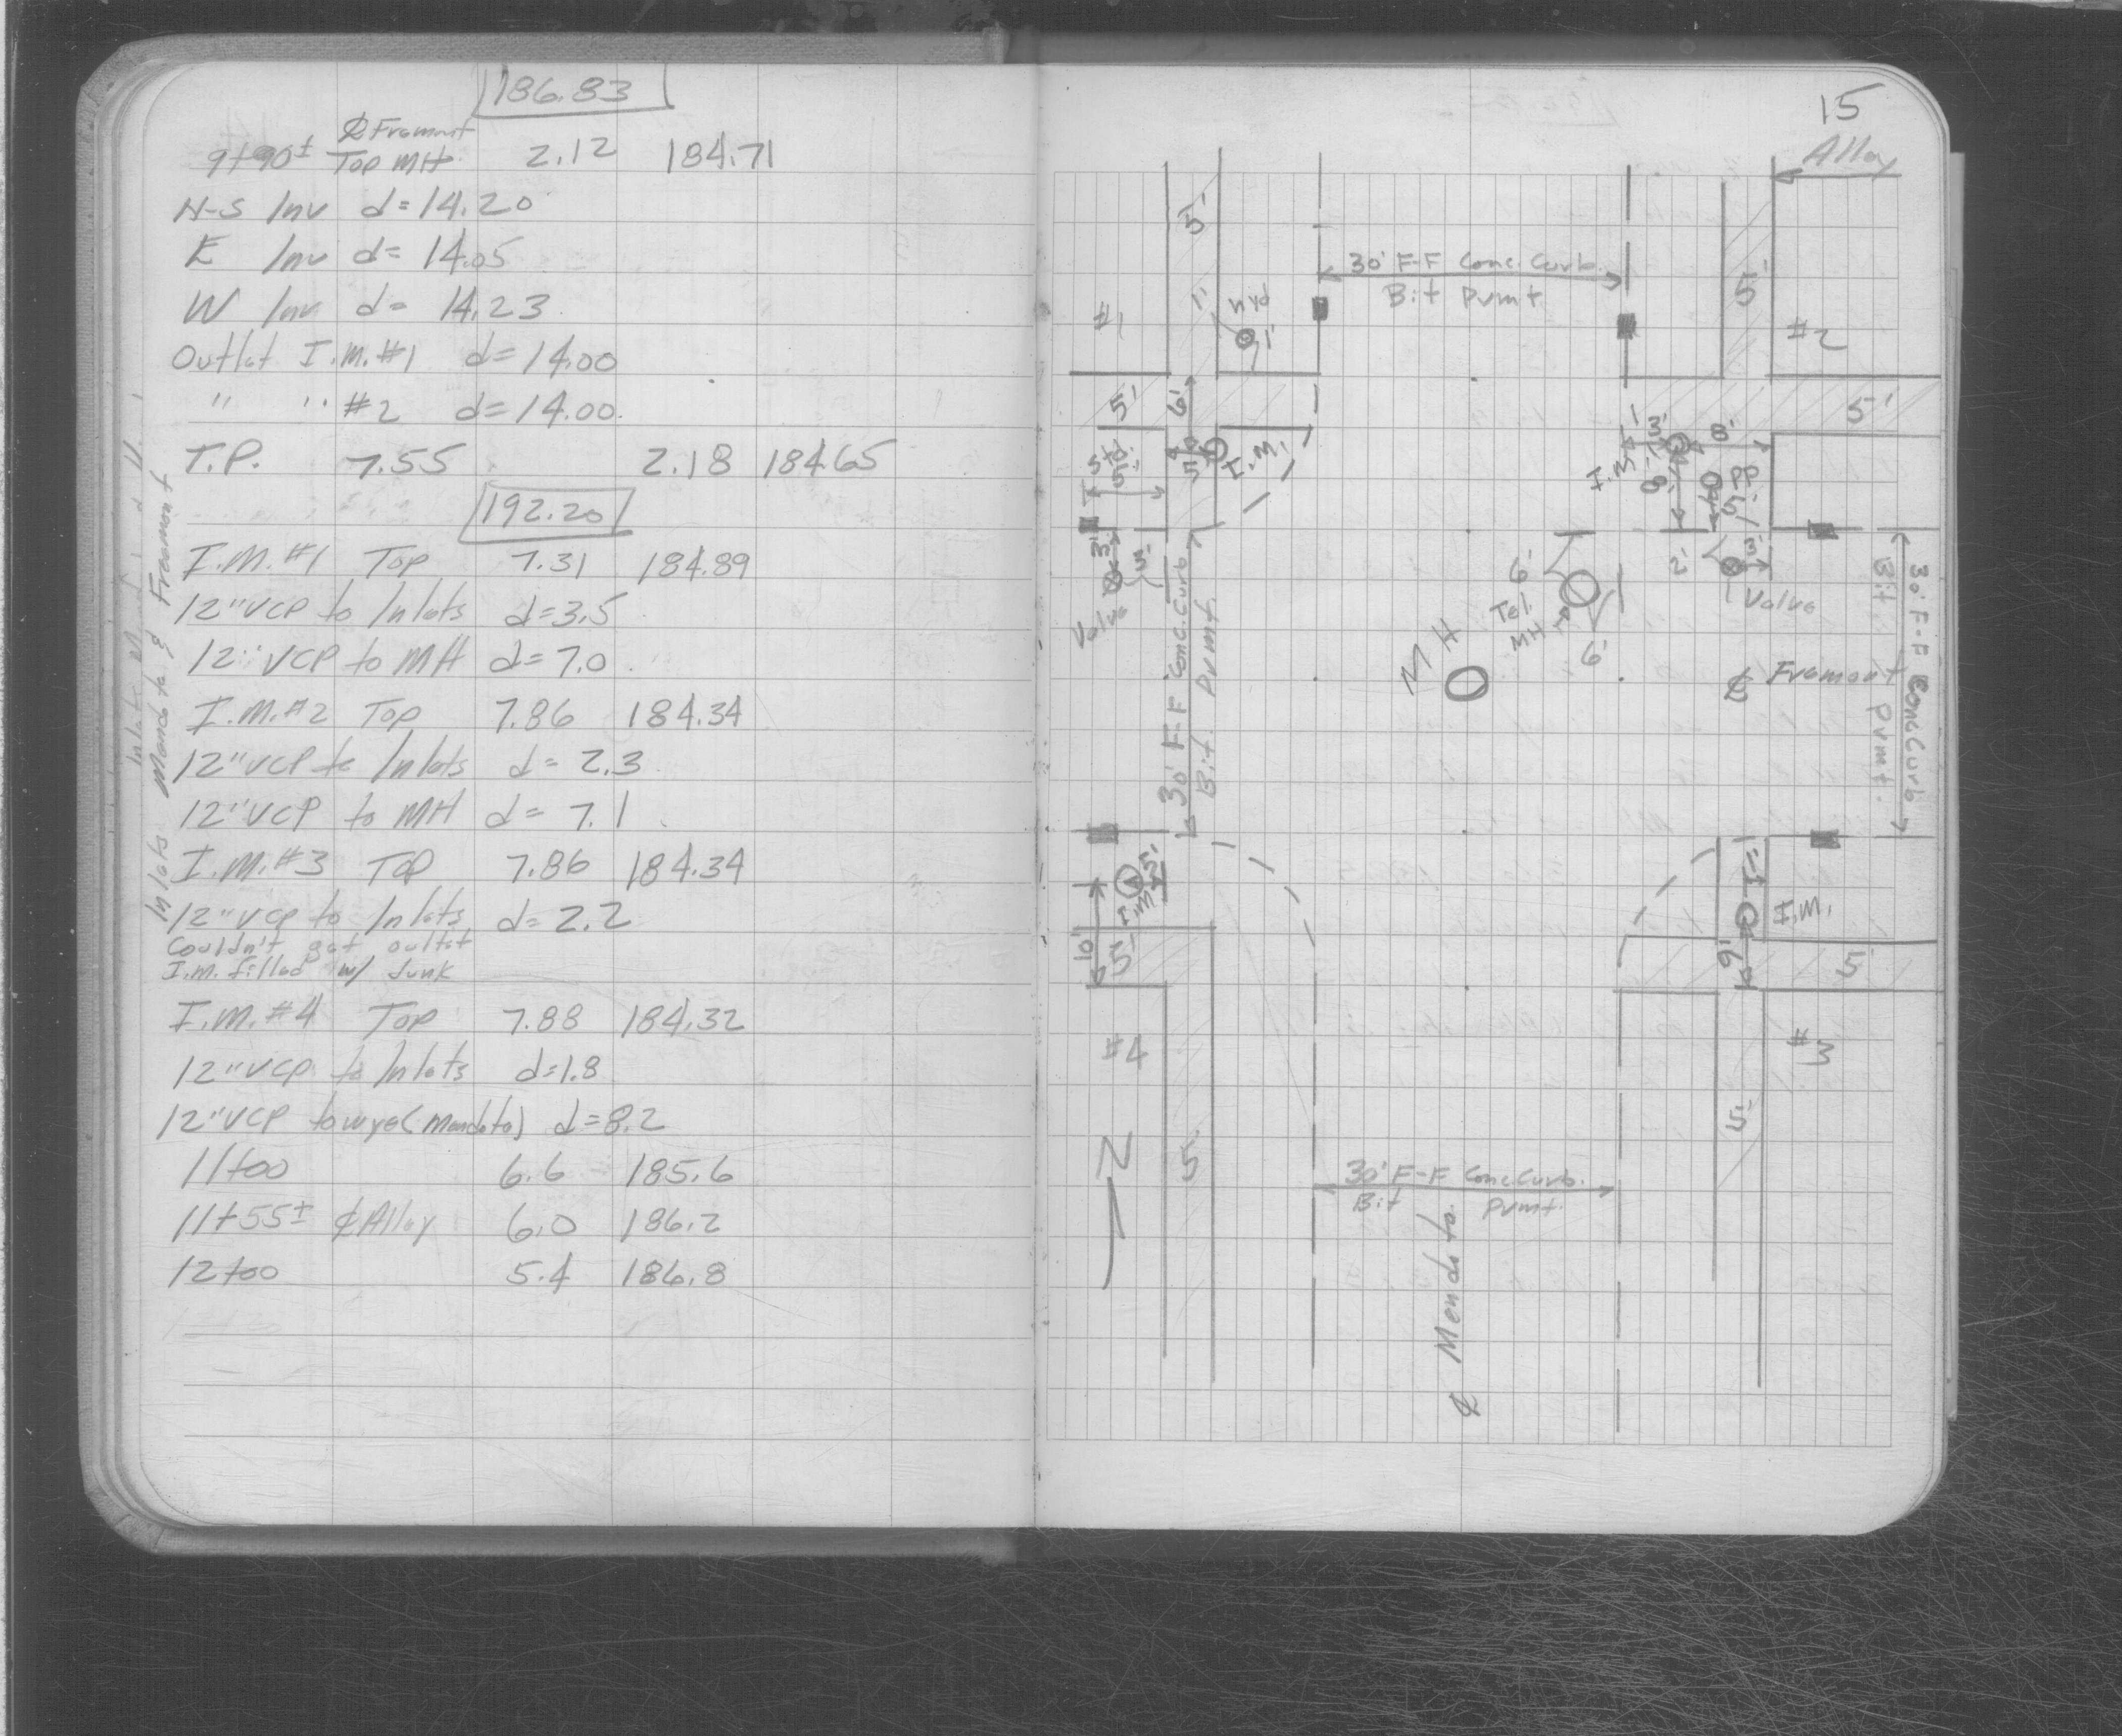 186.83
₵ Fremont
9+90± Top MH 2.12 184.71
N-S Inv d=14.20
E Inv d=14.05
W Inv d= 14.23
Outlet I.M.#1 d=14.00
" " #2 d=14.00
T.P. 7.55 2.18 184.65
192.20
I.M.#1 Top 7.31 184.89
12"VCP to Inlets d=3.5
12"VCP to MH d=7.0
I.M.#2 Top 7.86 184.34
12"VCP to Inlets d= 2.3
12"VCP to MH d= 7.1
I.M.#3 Top 7.86 184.34
12"VCP to Inlets d=2.2
Couldn't get outlet
I.M. filled w/ Junk
I.M.#4 Top 7.88 184.32
12"VCP to Inlets d=1.8
12"VCP to wye (Mendota) d=8.2
11+00 6.6 185.6
11+55± ₵ Alley 6.0 186.2
12+00 5.4 186.8
Inlets Mendota & Fremont
15
Alley
5'
30' F-F Conc. Curb.
Bit Pvmt
5'
#1
1'
Hyd
1'
#2
5'
6'
5'
1'
3'
8'
Std.
5'
I.M.
I.M.
8'
PP
5'
3'
5'
Valve
6'
Tel.
MH
6'
2'
3'
Valve
30' F-F Conc. Curb
Bit. Pvmt.
MH
₵ Fremont
30' F-F Conc Curb
Bit Pvmt.
5'
I.M.
10'
5'
I.M.
9'
5'
#4
#3
5'
N
5'
30' F-F Conc. Curb.
Bit Pvmt.
₵ Mendota